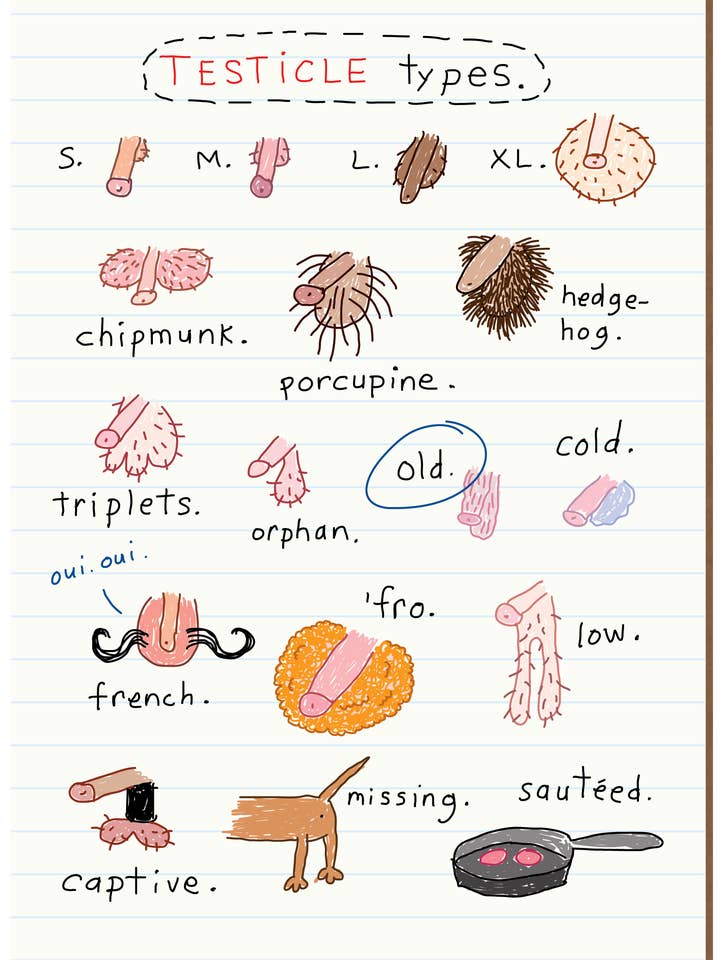 TESTiCLE types.
S. M. L. XL.
chipmunk.
porcupine.
hedge-
hog.
triplets.
orphan.
old.
cold.
oui. oui.
french.
'fro.
low.
captive.
missing.
sautéed.